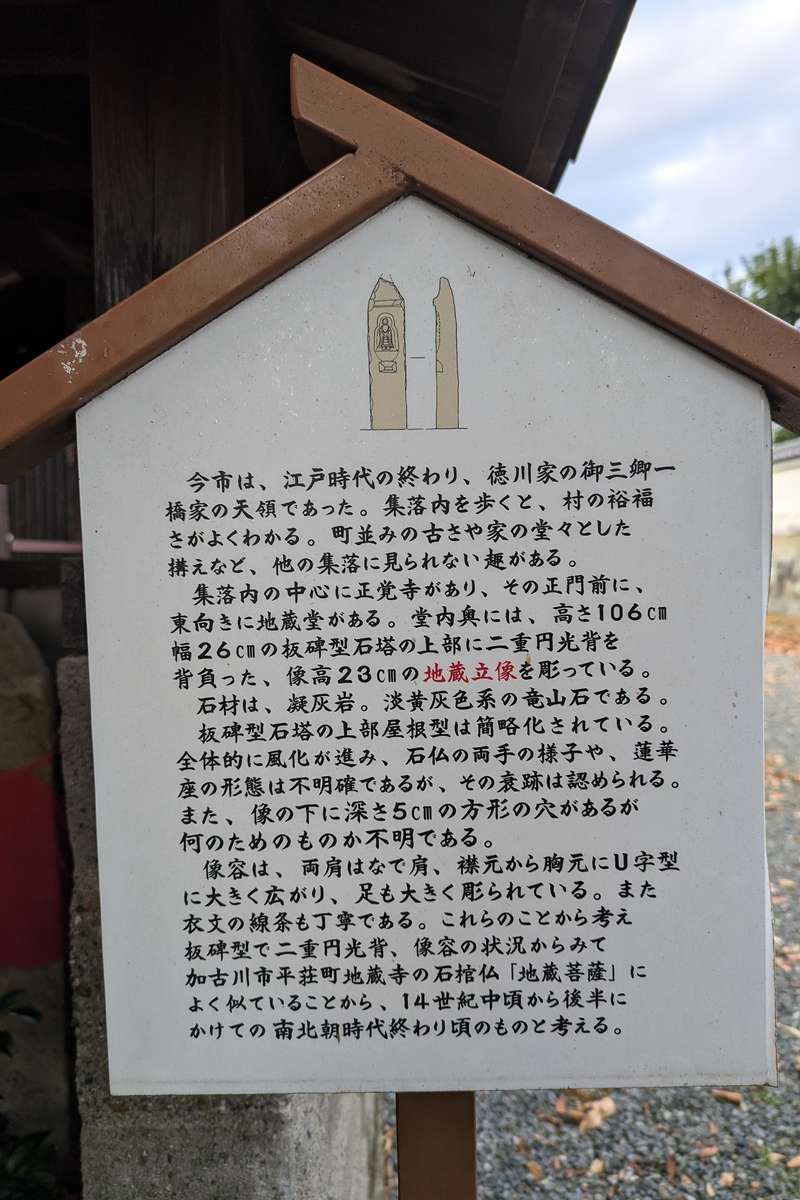 今市は、江戸時代の終わり、徳川家の御三卿一
橋家の天領であった。集落内を歩くと、村の裕福
さがよくわかる。町並みの古さや家の堂々とした
構えなど、他の集落に見られない趣がある。
集落内の中心に正覚寺があり、その正門前に、
東向きに地蔵堂がある。堂内奥には、高さ106㎝
幅26㎝の板碑型石塔の上部に二重円光背を
背負った、像高23㎝の地蔵立像を彫っている。
石材は、凝灰岩。淡黄灰色系の竜山石である。
板碑型石塔の上部屋根型は簡略化されている。
全体的に風化が進み、石仏の両手の様子や、蓮華
座の形態は不明確であるが、その衰跡は認められる。
また、像の下に深さ5㎝の方形の穴があるが
何のためのものか不明である。
像容は、両肩はなで肩、襟元から胸元にU字型
に大きく広がり、足も大きく彫られている。また
衣文の線条も丁寧である。これらのことから考え
板碑型で二重円光背、像容の状況からみて
加古川市平荘町地蔵寺の石棺仏「地蔵菩薩」に
よく似ていることから、14世紀中頃から後半に
かけての南北朝時代終わり頃のものと考える。